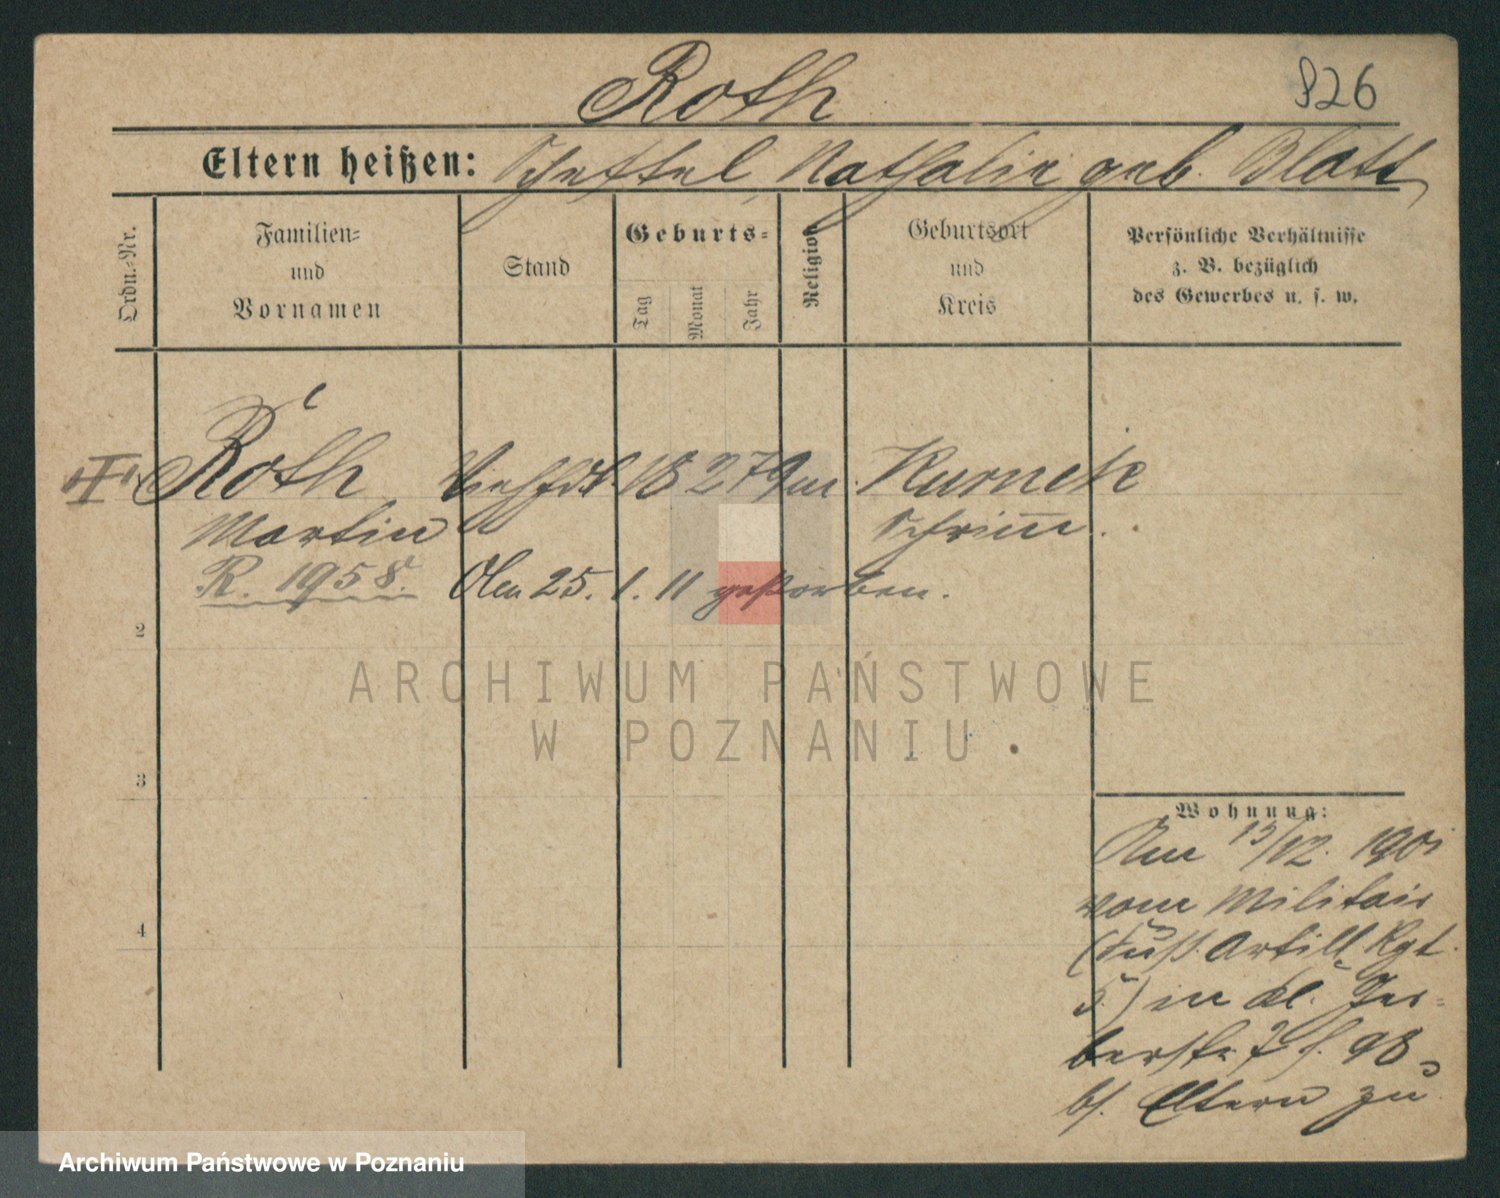 Roth
826
Eltern heißen: Scheftel, Nathalie geb. Blatt
Ordn.-Nr.
Familien-
und
Vornamen
Stand
Geburts-
Tag
Monat
Jahr
Religion
Geburtsort
und
Kreis
Persönliche Verhältnisse
z. B. bezüglich
des Gewerbes u. s. w.
Roth Viehhdl 18 2 79 m. Kurnik
Martin Schrim̅.
R. 1958.
Den 25. 1. 11 gestorben.
2
3
4
Wohnung:
Am 13/12. 1901
vom Militair
(Fuß. Artill. Rgt.
5.) in Kl. Ger-
berstr. 7 f. 98
bs. Eltern zu
ARCHIWUM PAŃSTWOWE
W POZNANIU
Archiwum Państwowe w Poznaniu